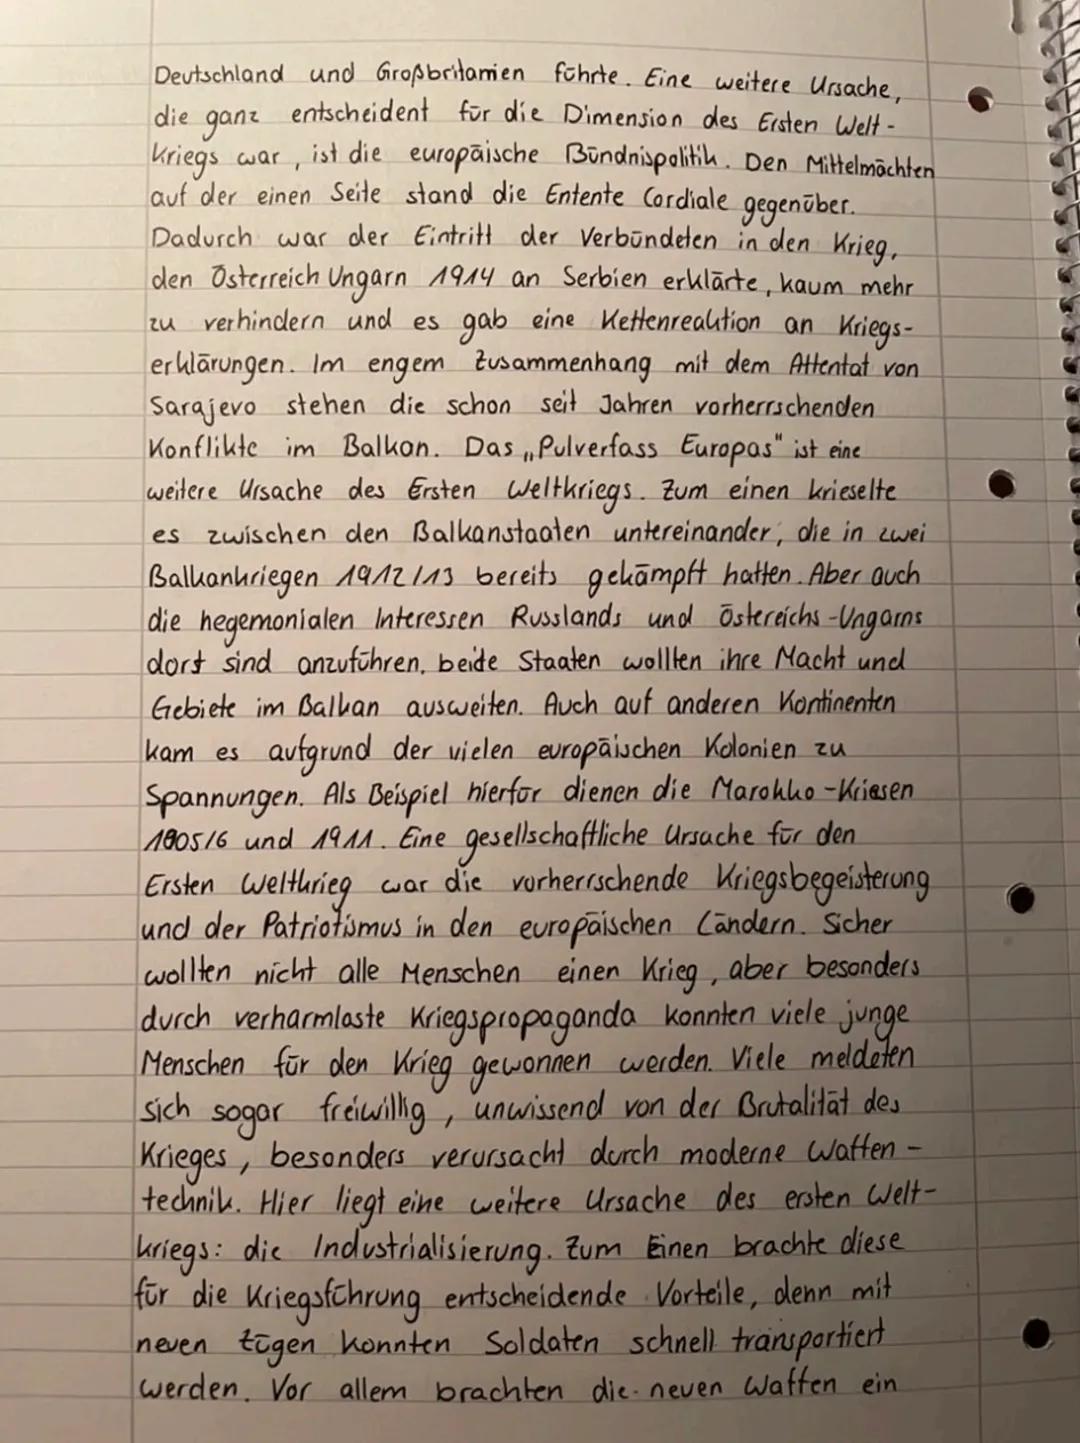 Deutschland und Großbritannien führte. Eine weitere Ursache,
die ganz entscheident für die Dimension des Ersten Welt-
Kriegs war, ist die europäische Bündnispolitik. Den Mittelmächten
auf der einen Seite stand die Entente Cordiale gegenüber.
Dadurch war der Eintritt der Verbündeten in den Krieg,
den Österreich Ungarn 1914 an Serbien erklärte, kaum mehr
zu verhindern und es gab eine Kettenreaktion an Kriegs-
erklärungen. Im engem Zusammenhang mit dem Attentat von
Sarajevo stehen die schon seit Jahren vorherrschenden
Konflikte im Balkon. Das „Pulverfass Europas" ist eine
weitere Ursache des Ersten Weltkriegs. Zum einen krieselte
es zwischen den Balkanstaaten untereinander, die in zwei
Balkankriegen 1912/13 bereits gekämpft hatten. Aber auch
die hegemonialen Interessen Russlands und Östereichs-Ungarns
dort sind anzuführen, beide Staaten wollten ihre Macht und
Gebiete im Balkan ausweiten. Auch auf anderen Kontinenten
kam es aufgrund der vielen europäischen Kolonien zu
Spannungen. Als Beispiel hierfür dienen die Marokko-Kriesen
1905/6 und 1911. Eine gesellschaftliche Ursache für den
Ersten Weltkrieg war die vorherrschende Kriegsbegeisterung
und der Patriotismus in den europäischen Ländern. Sicher
wollten nicht alle Menschen einen Krieg, aber besonders
durch verharmloste Kriegspropaganda konnten viele junge
Menschen für den Krieg gewonnen werden. Viele meldeten
sich sogar freiwillig, unwissend von der Brutalität des
Krieges, besonders verursacht durch moderne Waffen-
technik. Hier liegt eine weitere Ursache des ersten Welt-
kriegs: die Industrialisierung. Zum Einen brachte diese
für die Kriegsführung entscheidende Vorteile, denn mit
neuen Zügen konnten Soldaten schnell transportiert
werden. Vor allem brachten die neuen Waffen ein